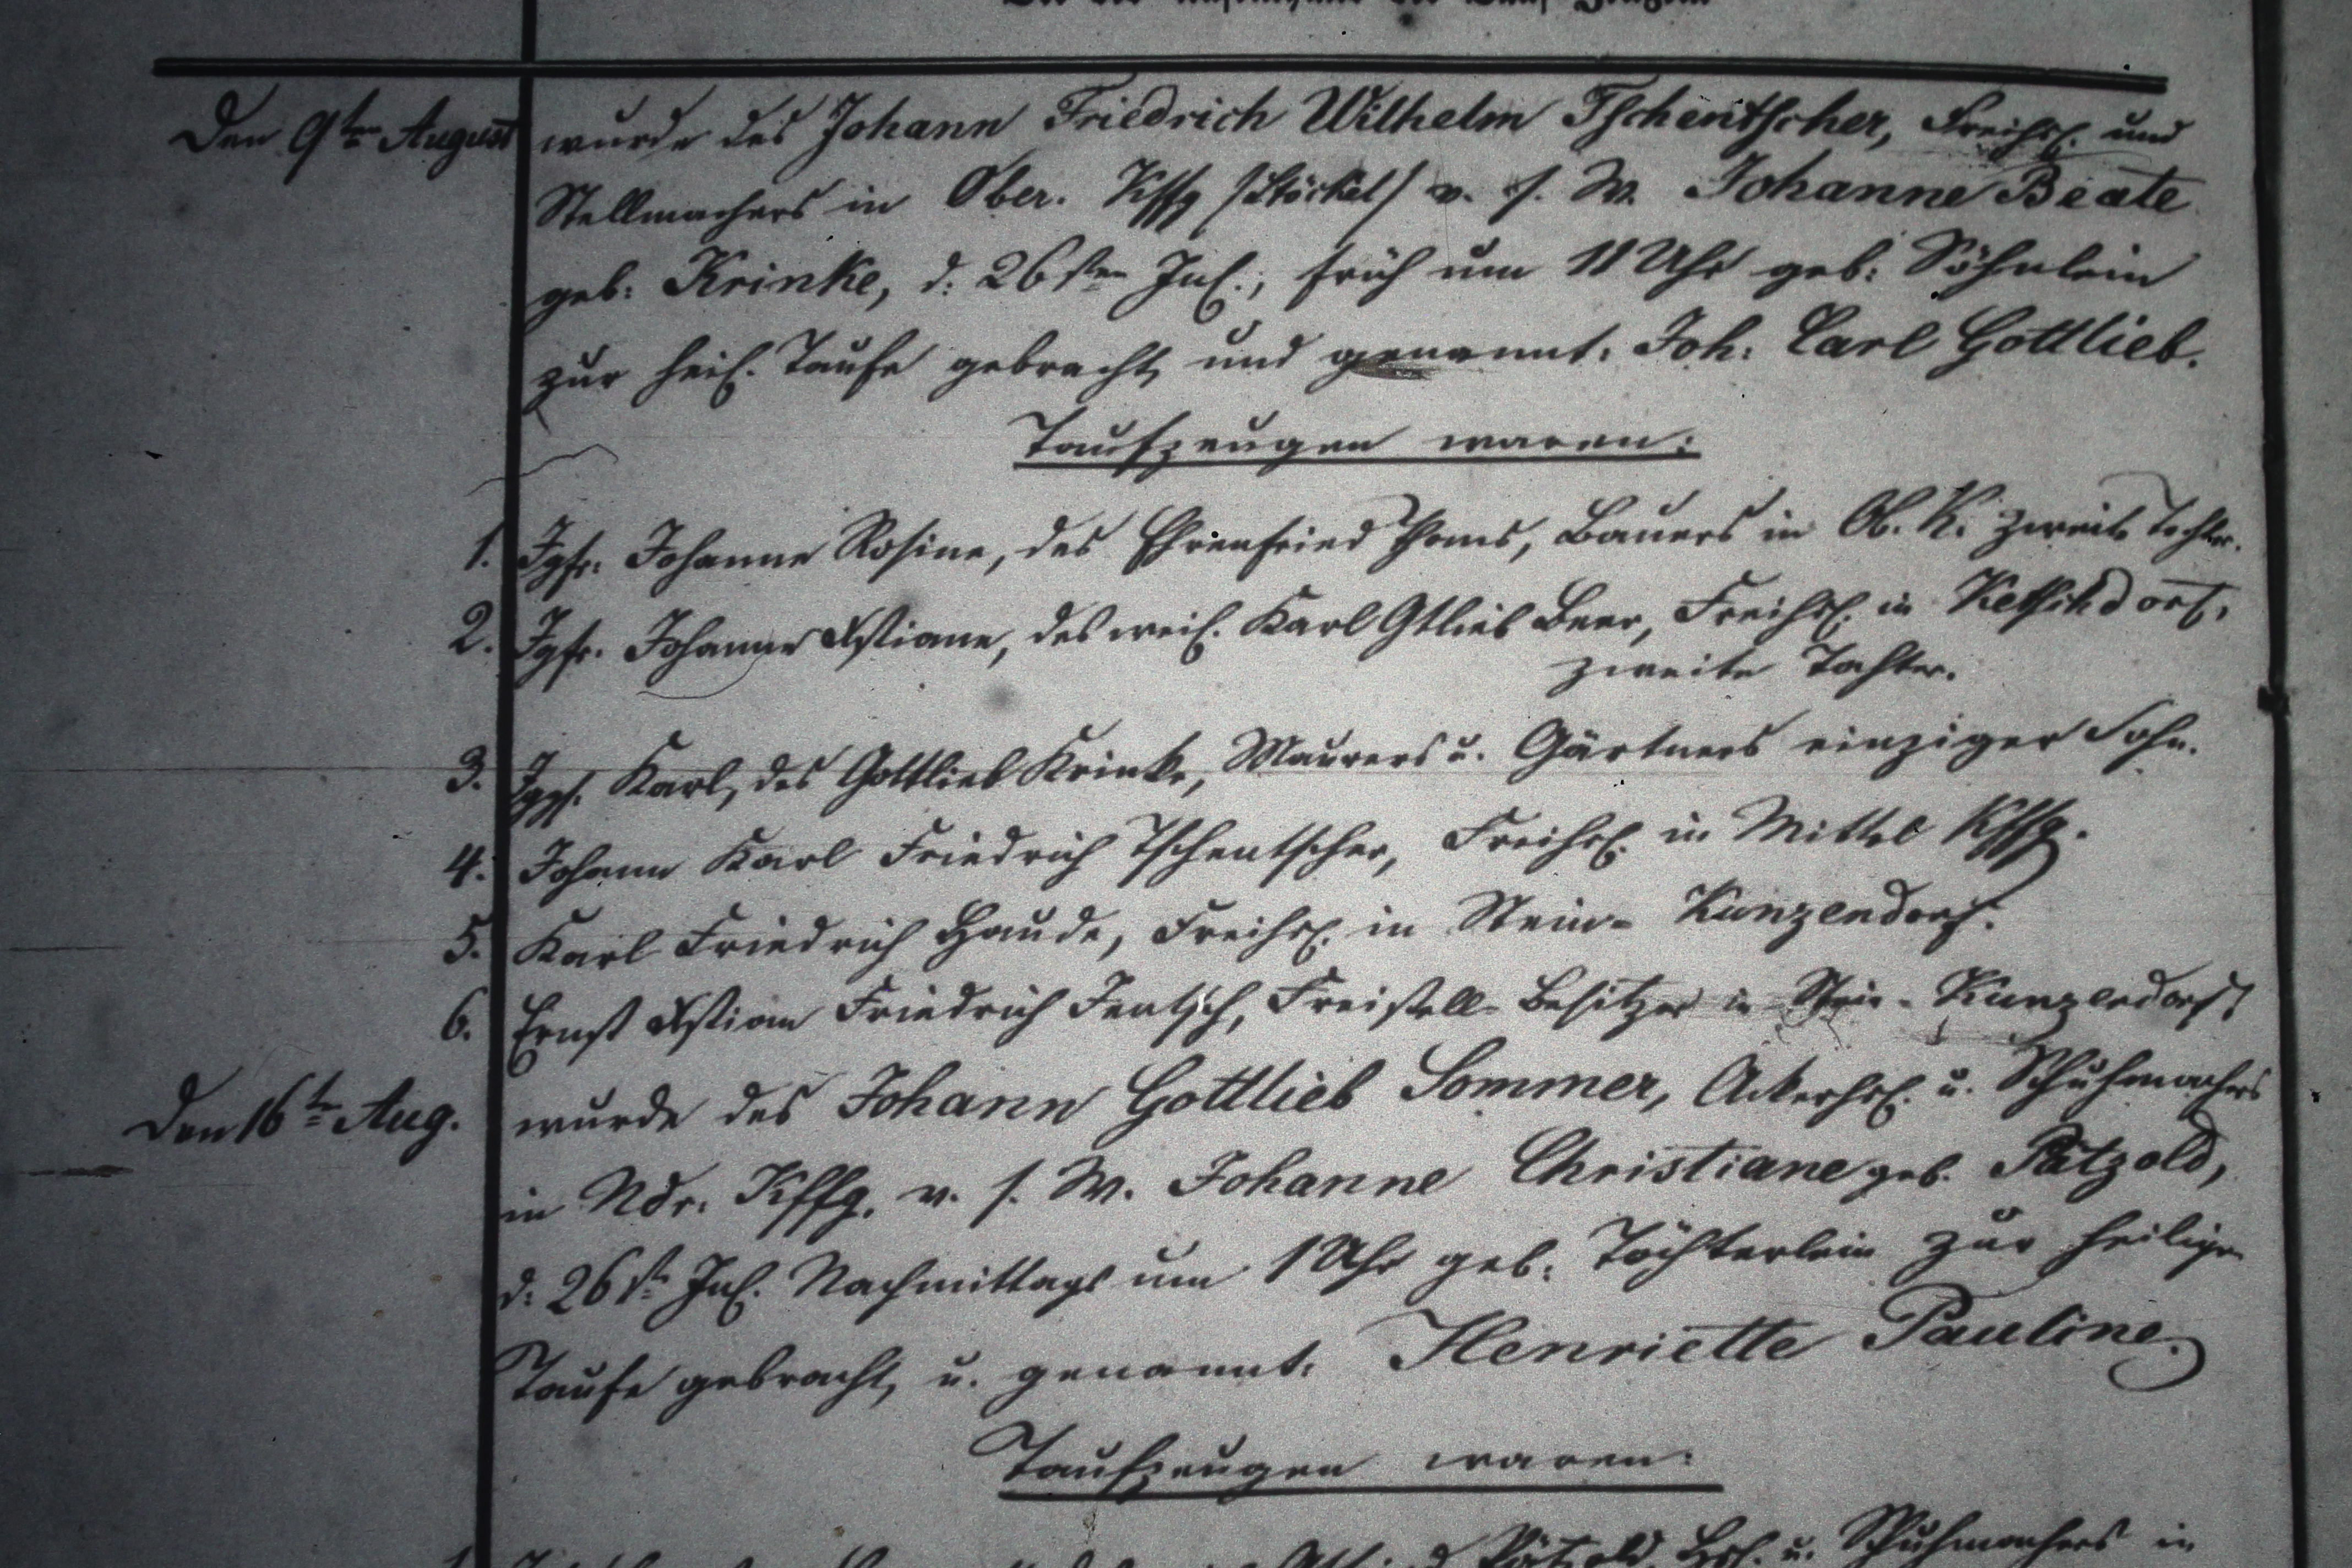 Den 9ten August wurde des Johann Friedrich Wilhelm Tschentscher, Freihsl. und
Stellmachers in Ober. Kffg (Stöckel) v. s. W. Johanne Beate
geb. Krinke, d. 26sten Jul., früh um 11 Uhr geb. Söhnlein
zur heil. Taufe gebracht, und genannt: Joh. Carl Gottlieb.
Taufzeugen waren:
1. Jgfr. Johanne Rosine, des Ehrenfried Thoms, Bauers in Ob. K. zweite Tochter.
2. Jgfr. Johanne Xstiane, des weil. Karl Gtlieb Beer, Freihsl. in Ketschdorf,
zweite Tochter.
3. Jggs. Karl, des Gottlieb Krinke, Maurers u. Gärtners einziger Sohn.
4. Johann Karl Friedrich Tschentscher, Freihsl. in Mittel Kffg.
5. Karl Friedrich Haude, Freihsl. in Stein-Kunzendorf.
6. Ernst Xstian Friedrich Jentsch, Freistell-Besitzer in Stein-Kunzendorf
Den 16te Aug. wurde des Johann Gottlieb Sommer, Ackerhsl. u. Schuhmachers
in Ndr. Kffg. v. s. W. Johanne Christiane geb. Pätzold,
d. 26st. Jul. Nachmittags um 1 Uhr geb. Töchterlein zur heiligen
Taufe gebracht, u. genannt: Henriette Pauline.
Taufzeugen waren:
Pätzold, Hsl. u. Schuhmachers in